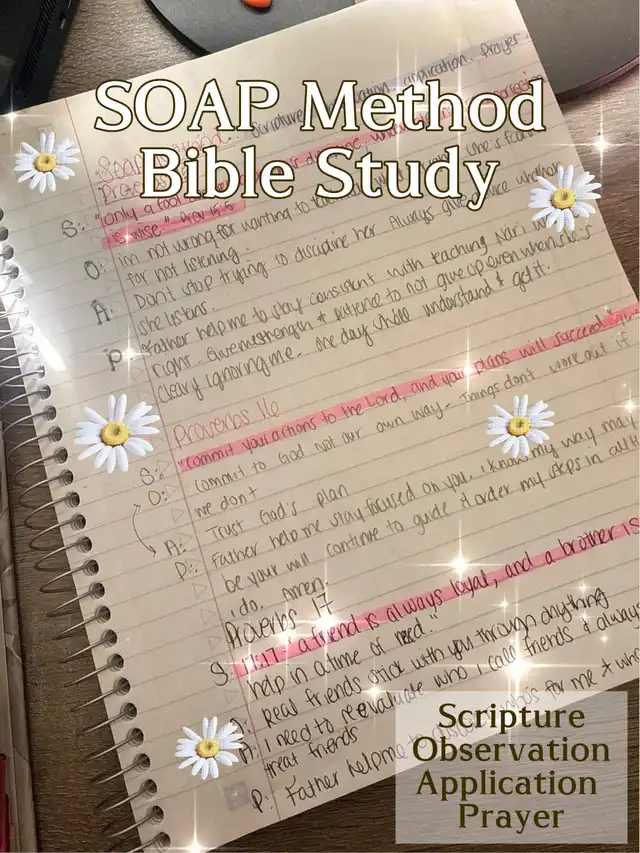 SOAP Method
Bible Study
Scripture, application, prayer
"only a fool
is wise." Prov 15:5
S:
O: im not wrong for wanting to
for not listening.
A: Don't stop trying to discipline her. Always give
she listens.
P: Father help me to stay consistent with teaching Nari
right. Give me strength & patience to not give up even when she's
clearly ignoring me. One day she'll understand & get it.
Proverbs 16
S: "commit your actions to the Lord, and your plans will succeed
O: commit to God not our own way. Things don't work out if
we don't
A: Trust God's plan
P: Father help me stay focused on you. i know my way may
be your will continue to guide & order my steps in all
i do. Amen.
Proverbs 17
S: 17:17 "a friend is always loyal, and a brother is
help in a time of need."
O: Real friends stick with you through anything
A: I need to reevaluate who I call friends & always
treat friends
P: Father help me to for me & who
Scripture
Observation
Application
Prayer